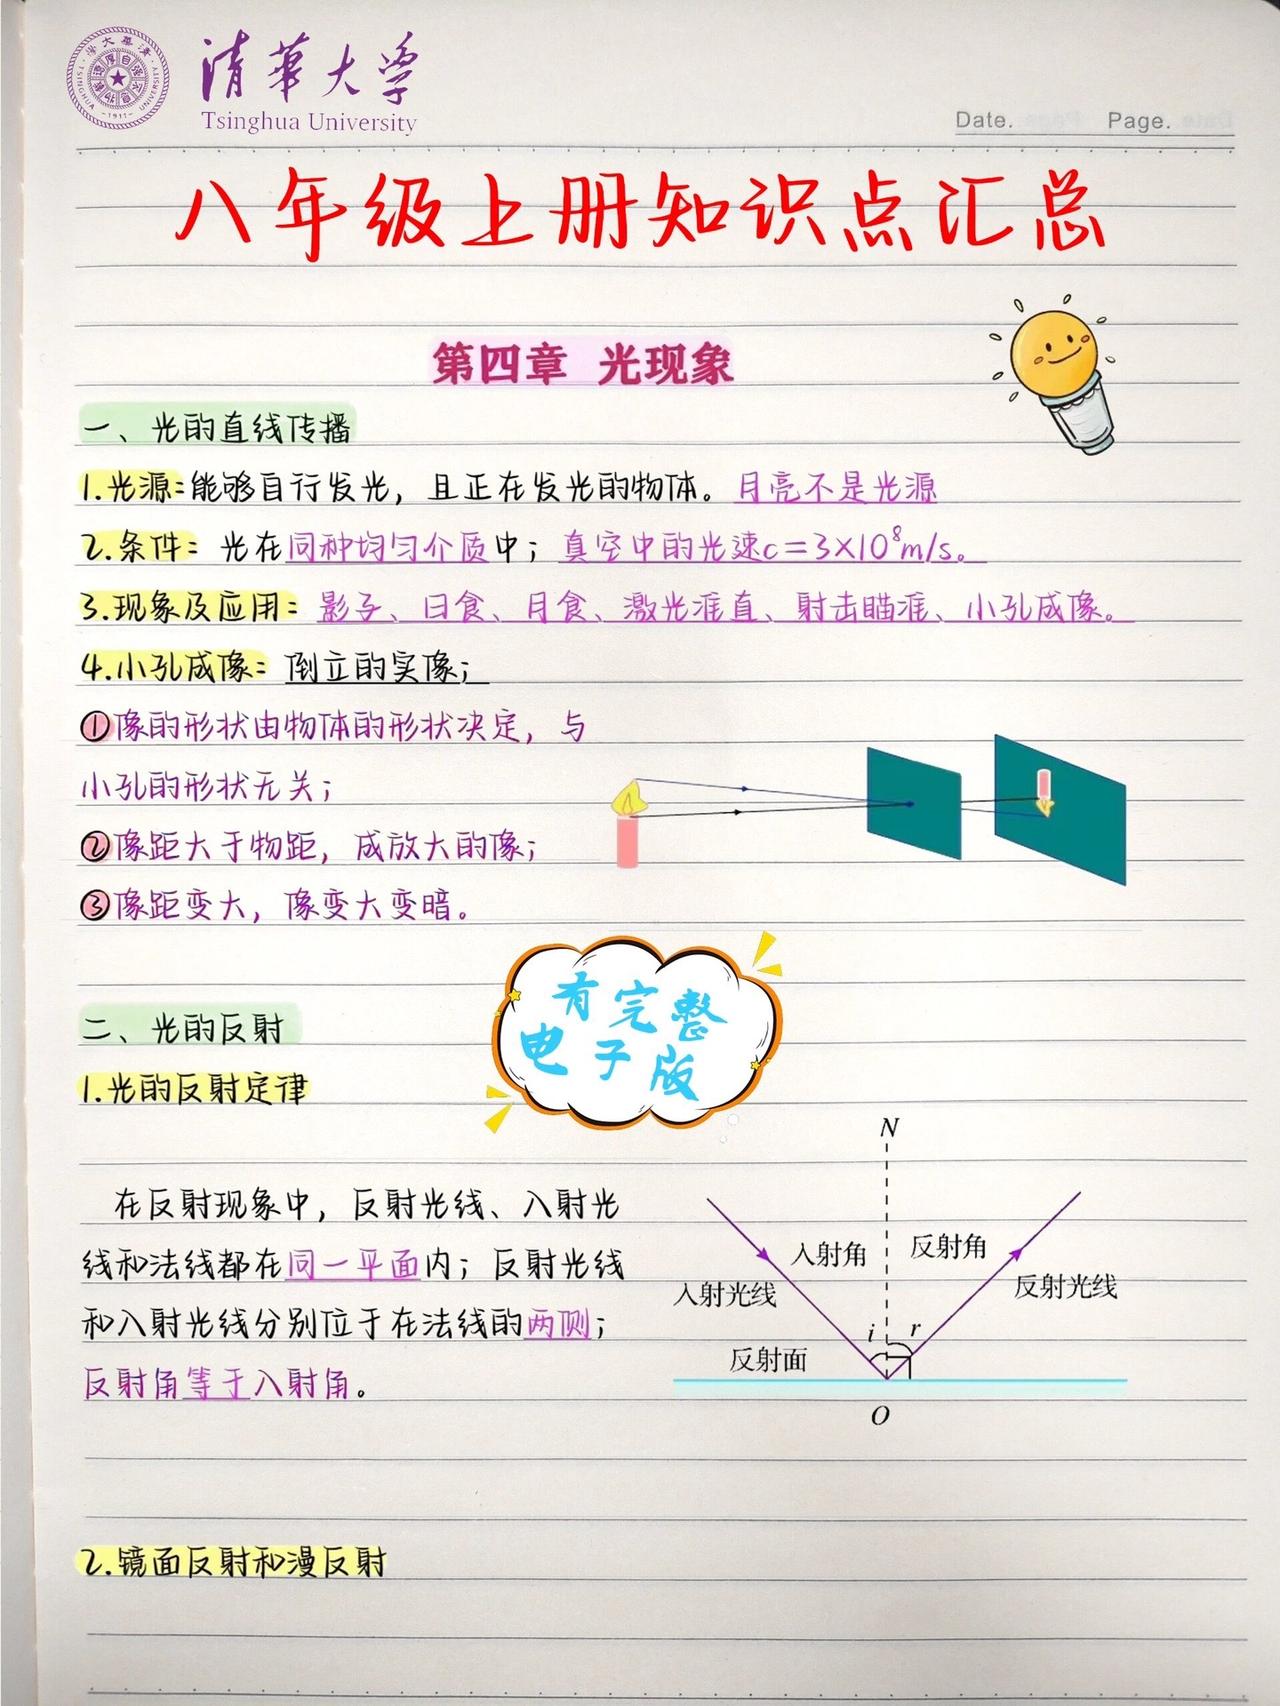 清華大学
Tsinghua University
Date. Page.
八年级上册知识点汇总
第四章 光现象
一、光的直线传播
1.光源:能够自行发光，且正在发光的物体。月亮不是光源
2.条件：光在同种均匀介质中；真空中的光速c=3×10⁸m/s。
3.现象及应用：影子、日食、月食、激光准直、射击瞄准、小孔成像。
4.小孔成像：倒立的实像；
①像的形状由物体的形状决定，与
小孔的形状无关；
②像距大于物距，成放大的像；
③像距变大，像变大变暗。
有完整
电子版
二、光的反射
1.光的反射定律
在反射现象中，反射光线、入射光
线和法线都在同一平面内；反射光线
和入射光线分别位于在法线的两侧；
反射角等于入射角。
N
入射角 反射角
入射光线 反射光线
i r
反射面
O
2.镜面反射和漫反射